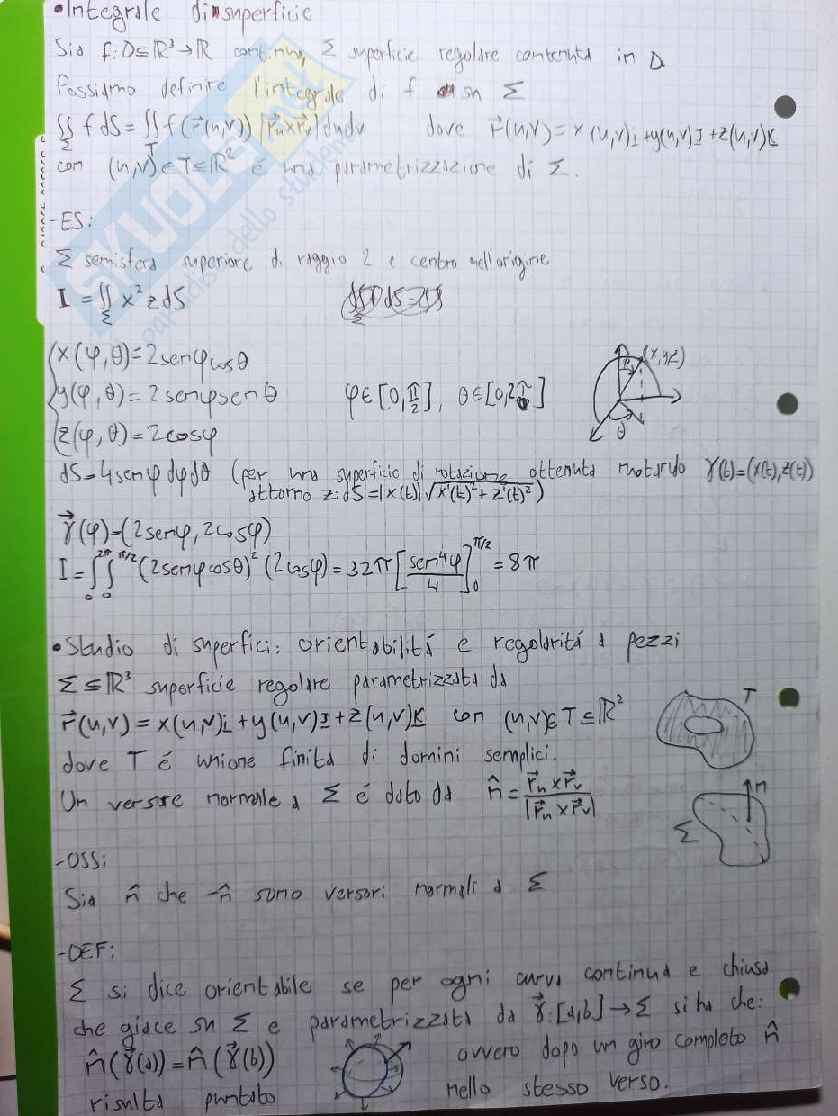 •Integrale di superficie
Sia f:D⊆ℝ³→ℝ continua, Σ superficie regolare contenuta in D
Possiamo definire l'integrale di f su Σ
∬_Σ f dS = ∬_T f(r⃗(u,v)) |r⃗u×r⃗v| du dv dove r⃗(u,v)=x(u,v)i+y(u,v)J+z(u,v)K
con (u,v)∈T⊆ℝ² é una parametrizzazione di Σ.
-ES:
Σ semisfera superiore di raggio 2 e centro nell'origine
I = ∬_Σ x² z dS
x(φ,θ)=2senφcosθ
y(φ,θ)=2senφsenθ φ∈[0,π/2], θ∈[0,2π]
z(φ,θ)=2cosφ
(x,y,z)
φ
θ
dS=4senφ dφdθ (per una superficie di rotazione ottenuta ruotando γ(t)=(x(t),z(t))
attorno z: dS=|x(t)|√(x'(t)²+z'(t)²))
γ⃗(φ)=(2senφ,2cosφ)
I=∫₀^2π∫₀^π/2 (2senφcosθ)²(2cosφ)=32π[sen⁴φ/4]₀^π/2=8π
•Studio di superfici: orientabilitá e regolaritá a pezzi
Σ⊆ℝ³ superficie regolare parametrizzata da
r⃗(u,v)=x(u,v)i+y(u,v)J+z(u,v)K con (u,v)∈T⊆ℝ²
T
dove T é unione finita di domini semplici.
Un versore normale a Σ é dato da n̂=r⃗u×r⃗v/|r⃗u×r⃗v|
n
Σ
-OSS:
Sia n̂ che -n̂ sono versori normali a Σ
-DEF:
Σ si dice orientabile se per ogni curva continua e chiusa
che giace su Σ e parametrizzata da γ⃗:[a,b]→Σ si ha che:
n̂(γ⃗(a))=n̂(γ⃗(b)) ovvero dopo un giro completo n̂
risulta puntato nello stesso verso.